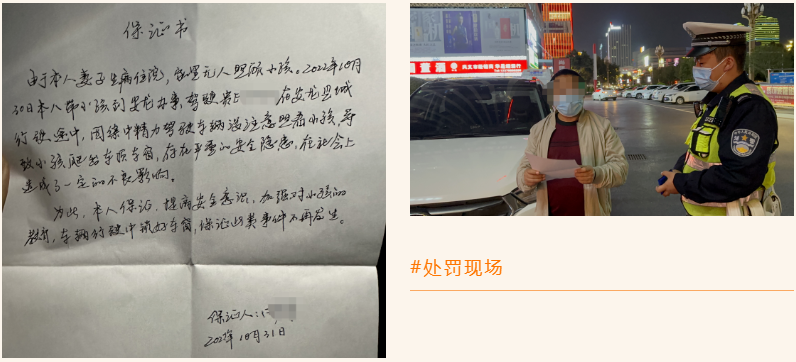 保证书
由于本人妻子生病住院，家里无人照顾小孩。2022年10月
30日本人带小孩到安龙办事，驾驶贵E 在安龙县城
行驶途中，因集中精力驾驶车辆没注意照看小孩，导
致小孩爬出车顶车窗，存在严重的安全隐患，在社会上
造成了一定的不良影响。
为此，本人保证，提高安全意识，加强对小孩的
教育，车辆行驶中锁好车窗，保证此类事件不再发生。
保证人：
2022年10月31日
#处罚现场